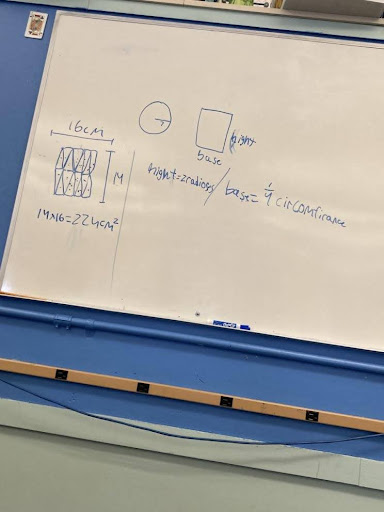 16cm
14
14×16=224cm²
hight
base
hight=2radiuss/base=¼circomfirance